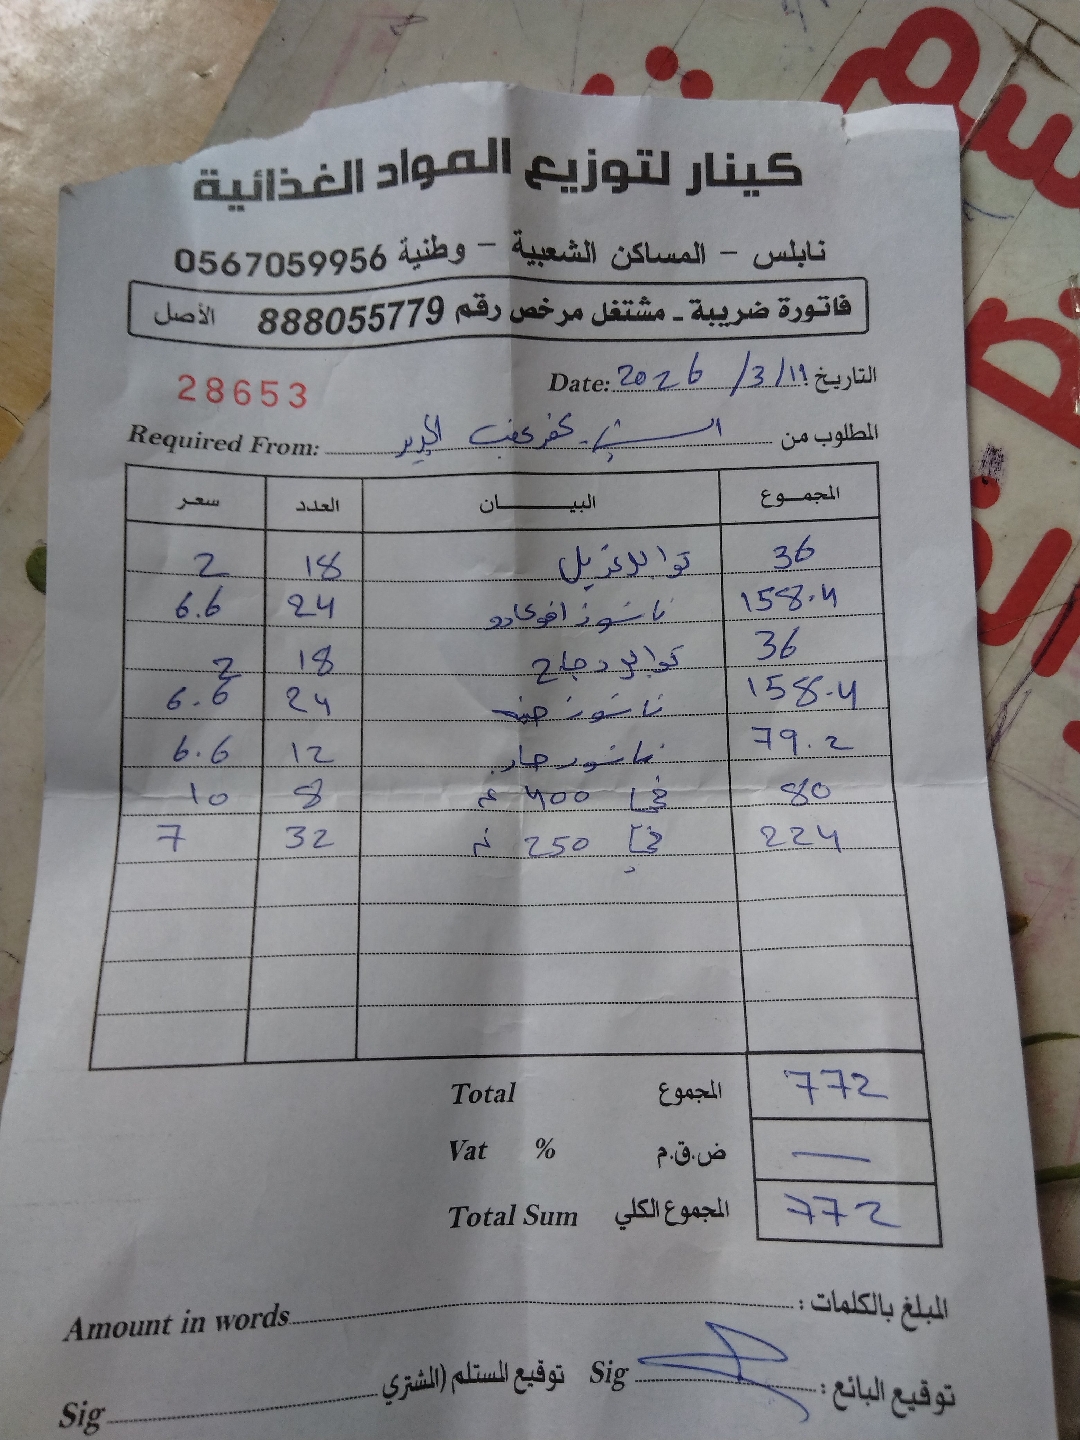 كينار لتوزيع المواد الغذائية
نابلس - المساكن الشعبية - وطنية 0567059956
فاتورة ضريبة ـ مشتغل مرخص رقم 888055779 الأصل
28653
التاريخ 11/3/2026 Date:
المطلوب من كفر عقب Required From:
المجموع البيان العدد سعر
36 18 2
158.4 ناشوز افوكادو 24 6.6
36 دجاج 18 2
158.4 ناشوز جبنه 24 6.6
79.2 ناشوز حار 12 6.6
80 400 غم 8 10
224 250 غم 32 7
Total المجموع 772
Vat % ض.ق.م —
Total Sum المجموع الكلي 772
المبلغ بالكلمات : Amount in words
توقيع البائع : Sig
توقيع المستلم (الشتري Sig